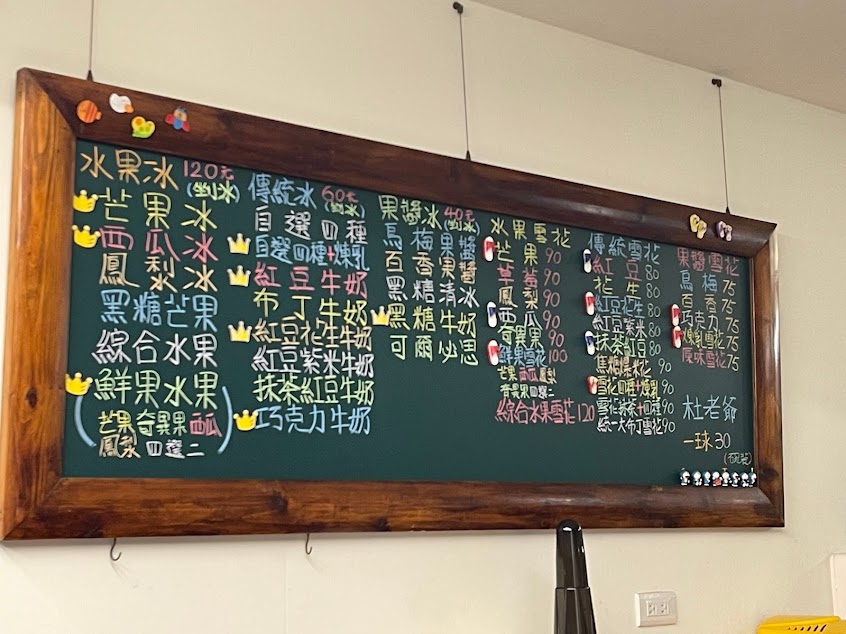 水果冰 120元
(剉冰)
芒果冰
西瓜冰
鳳梨冰
黑糖芒果
綜合水果
鮮果水果
(芒果奇異果西瓜
鳳梨 四選二)
傳統冰 60元
(剉冰)
自選四種
自選四種+煉乳
紅豆牛奶
布丁牛奶
紅豆花生牛奶
紅豆紫米牛奶
抹茶紅豆牛奶
巧克力牛奶
果醬冰 40元
(剉冰)
烏梅果醬
百香果醬
黑糖清冰
黑糖牛奶
可爾必思
水果雪花
芒果 90
草莓 90
鳳梨 90
西瓜 90
奇異果 90
鮮果雪花 100
芒果 西瓜 鳳梨
奇異果 四選二
綜合水果雪花 120
傳統雪花
紅豆 80
花生 80
紅豆花生 80
紅豆紫米 80
抹茶紅豆 80
焦糖黑木花 90
雪花四種+煉乳 90
雪花抹茶+四種 90
統一大布丁雪花 90
果醬雪花
烏梅 75
百香 75
巧克力 75
煉乳雪花 75
原味雪花 75
杜老爺
一球 30